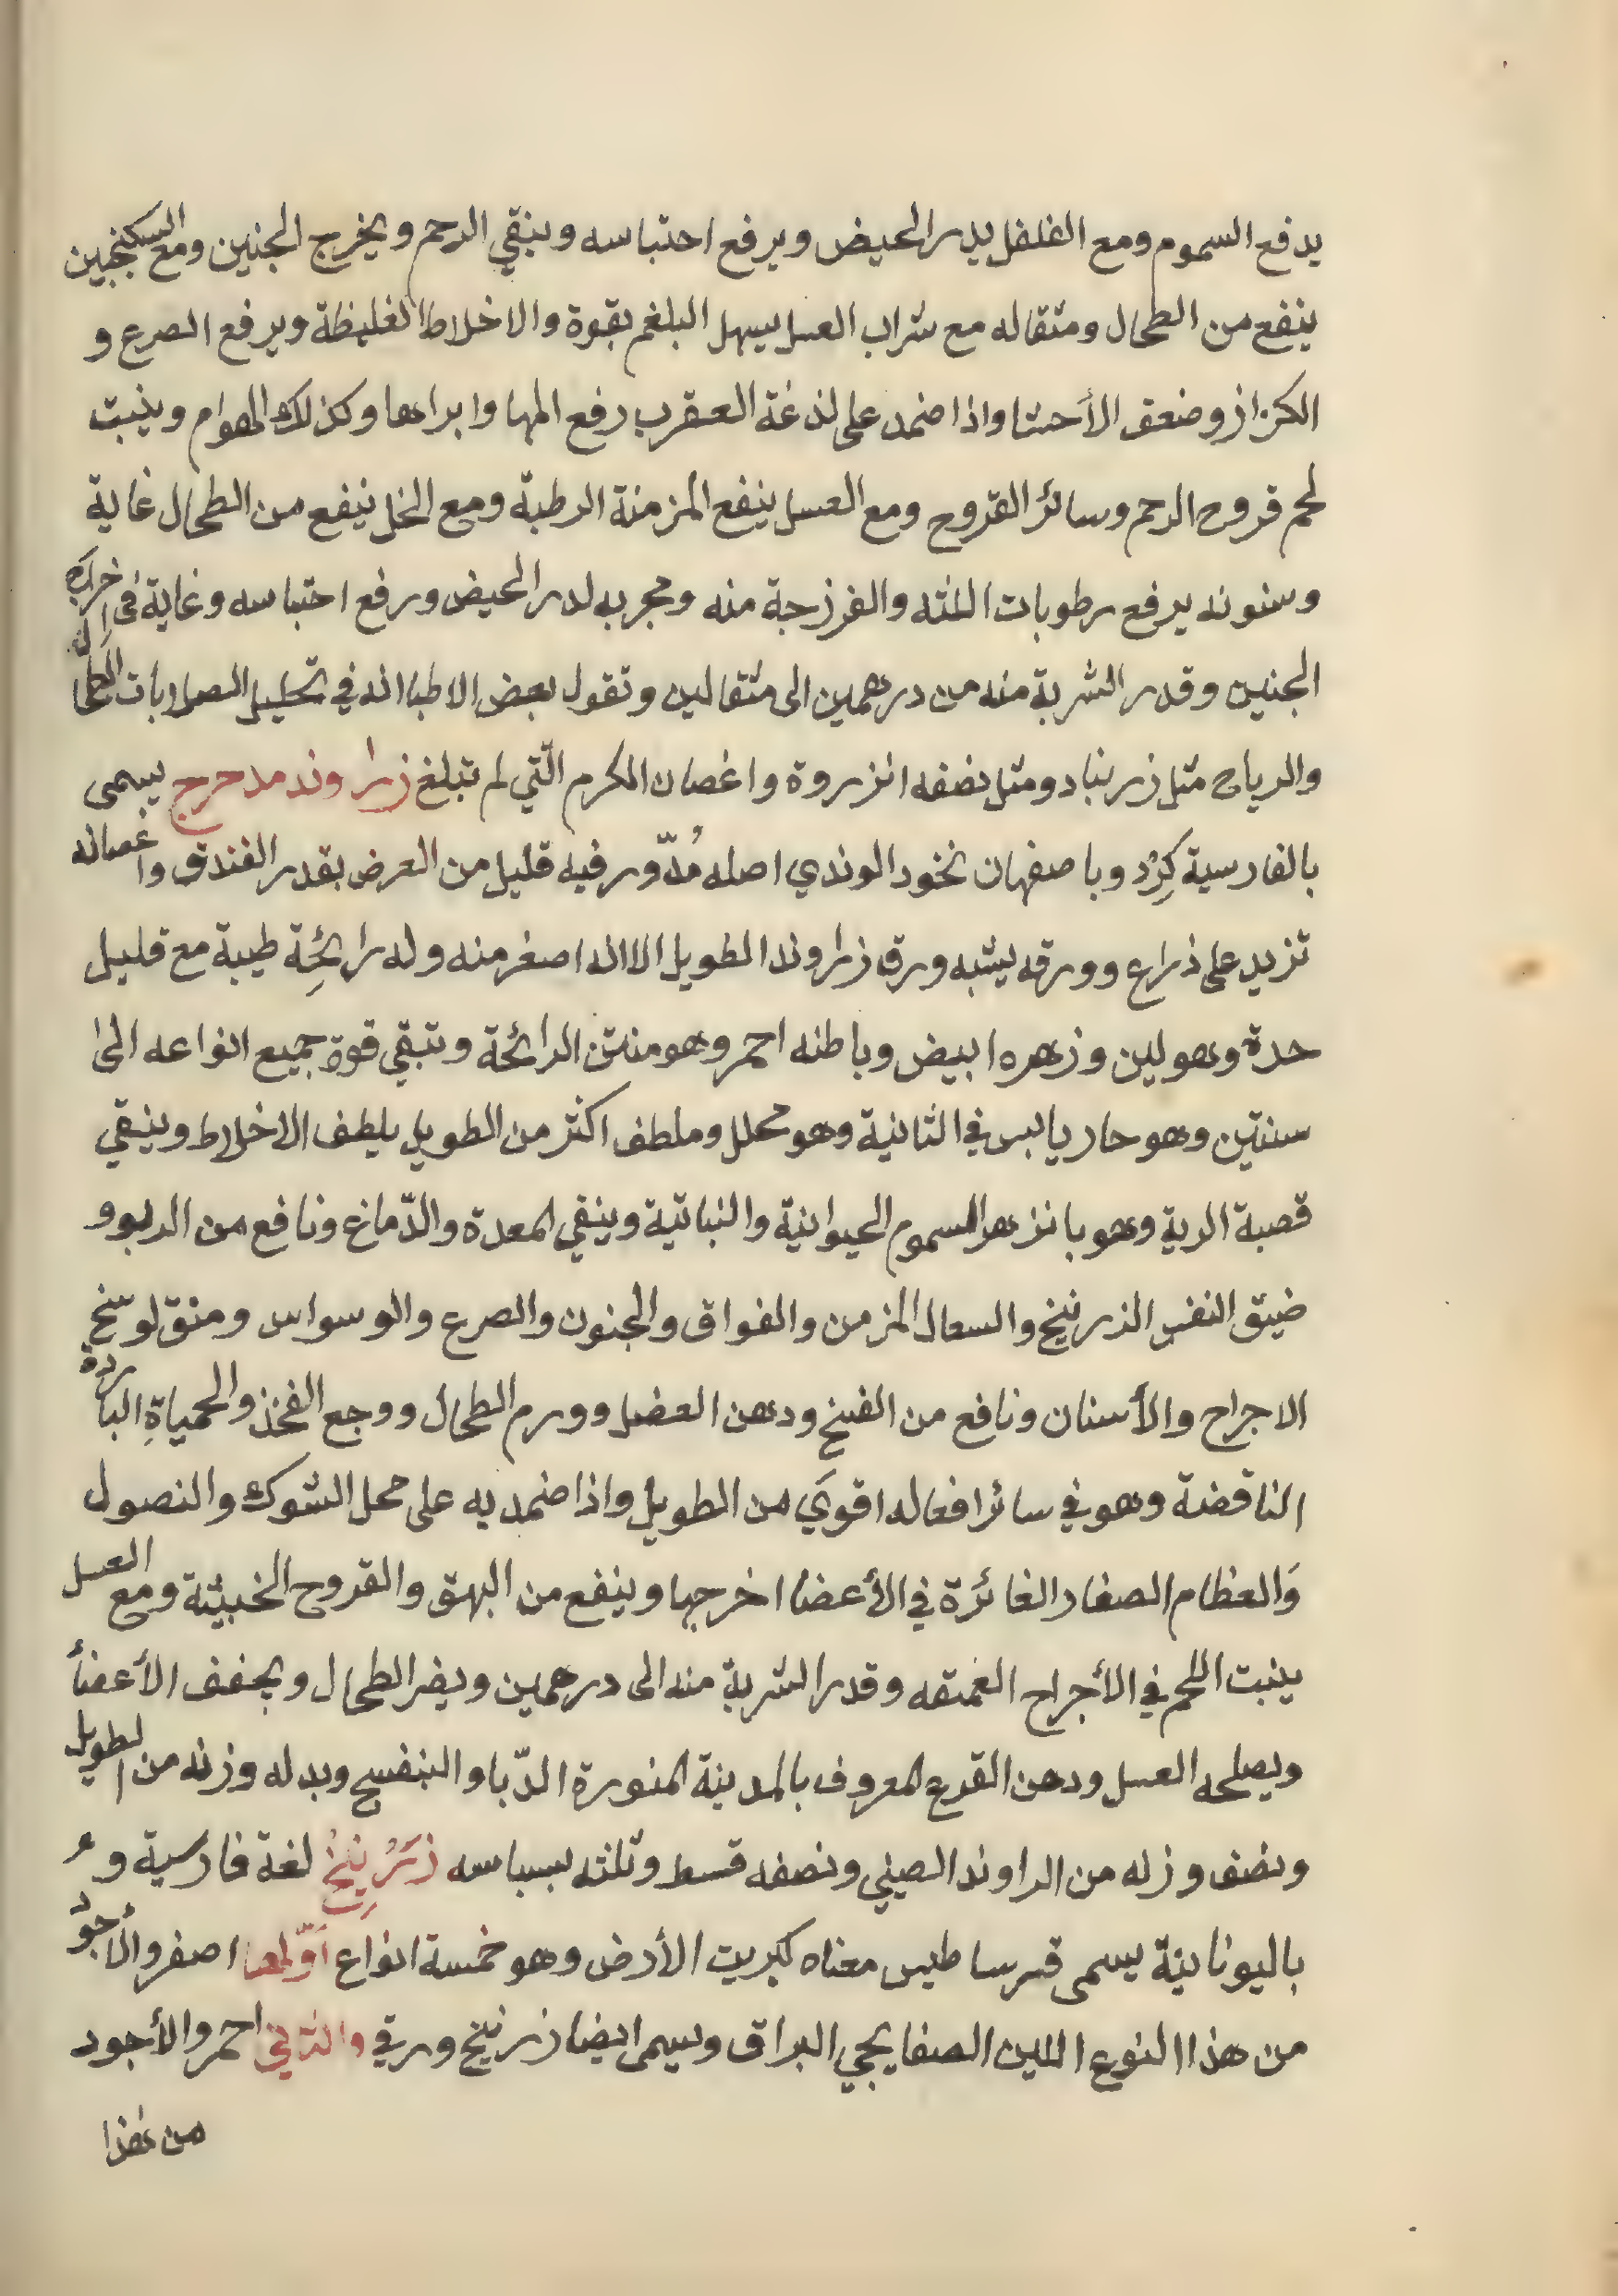 يدفع السموم ومع الفلفل يدر الحيض ويرفع احتباسه وينقي الرحم ويخرج الجنين ومع السكنجبين
ينفع من الطحال ومثقاله مع شراب العسل يسهل البلغم بقوة والاخلاط الغليظة ويرفع الصرع و
الكزاز وضعف الأحشا واذا ضمد على لدغة العقرب رفع المها وابراها وكذلك الهوام وينبت
لحم قروح الرحم وسائر القروح ومع العسل ينفع المزمنة الرطبة ومع الخل ينفع من الطحال غاية
وسنونه يرفع رطوبات اللثه والفرزجة منه ومجرب لدر الحيض ورفع احتباسه وغاية في اخراج
الجنين وقدر الشربة منه من درهمين الى مثقالين وتقول بعض الاطبا انه في تحليل الصلابات الطحال
والرياح مثل زرنباد ومثل نصفه انزروة واغصان الكرم التّي لم تبلغ زراوند مدحرج يسمى
بالفارسية كِرْد وباصفهان نخود الوندي اصله مُدّور فيه قليل من العرض بقدر الفندق واغصانه
تزيد على ذراع وورقه يشبه ورق زراوند الطويل الا انه اصغر منه وله رائحِة طيبة مع قليل
حدة وهو لين وزهره ابيض وباطنه احمر وهو منتن الرائحة وتبقي قوة جميع انواعه الى
سنتين وهو حار يابس في الثانية وهو محلل وملطف اكثر من الطويل يلطف الاخلاط وينقي
قصبة الرية وهو بانزهر السموم الحيوانية والنباتية وينقي المعدة والدّماغ ونافع من الربو و
ضيق النفس الزرنيخ والسعال المزمن والفواق والجنون والصرع والوسواس ومنق لوسخ
الاجراح والأسنان ونافع من الفسخ ودهن العضل وورم الطحال ووجع الفخذ والحمياةِ الباردة
الناقضة وهو في سائر افعاله اقوي من الطويل واذا ضمد به على محل الشوك والنصول
وَالعظام الصغار الغائرة في الأعضا اخرجها وينفع من البهق والقروح الخبيثة ومع العسل
ينبت اللحم في الأجراح الغمتقه وقدر الشربة منه الى درهمين ويضر الطحال ويجفف الأعضأ
ويصلحه العسل ودهن القرع المعروف بالمدينة المنورة الدّبا والبنفسج وبدله وزنه من الطويل
ونصف وزنه من الراوند الصيني ونصفه قسط وثلثه بسباسه زَرْنِيخْ لغة فارسية و
باليونانيّة يسمى قرساطيس معناه كبريت الأرض وهو خمسة انواع اوّلها اصفر والأجودُ
من هذا النوع اللين الصفايحي البراق ويسمى ايضا زرنيخ ورقي والثاني احمر والأجود
من هذا